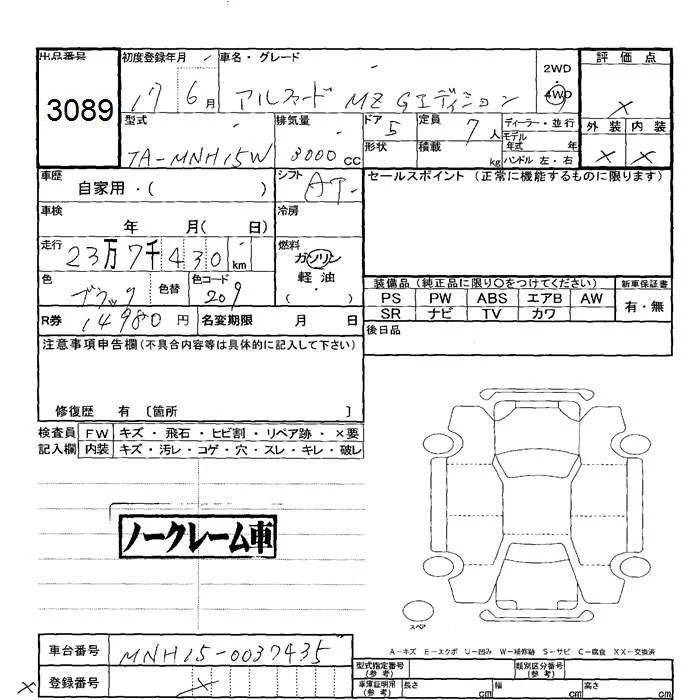 出品番号 初度登録年月 車名・グレード 2WD 評価点
3089 17 6月 アルファード MZ Gエディション 4WD ×
型式 排気量 ドア 定員 ディーラー・並行 外装 内装
TA-MNH15W 3000cc 5 7人 モデル年式 年 × ×
形状 積載 kg ハンドル 左・右
車歴 シフト セールスポイント(正常に機能するものに限ります)
自家用・( ) AT
車検 冷房
年 月( 日)
走行 燃料
23万7千430km ガソリン
軽油
( )
色 色替 色コード 装備品(純正品に限り○をつけてください) 新車保証書
ブラック 209 PS PW ABS エアB AW 有・無
SR ナビ TV カワ
R券 14980円 名変期限 月 日 後日品
注意事項申告欄(不具合内容等は具体的に記入して下さい)
修復歴 有 〔箇所 〕
検査員 FW キズ・飛石・ヒビ割・リペア跡・×要
記入欄 内装 キズ・汚レ・コゲ・穴・スレ・キレ・破レ
ノークレーム車
スペア
A-キズ E-エクボ U-凹み W-補修跡 S-サビ C-腐食 XX-交換済
車台番号 MNH15-0037435
型式指定番号(参考) 類別区分番号(参考)
× 登録番号 ×
車庫証明用(参考) 長さ cm 幅 cm 高さ cm